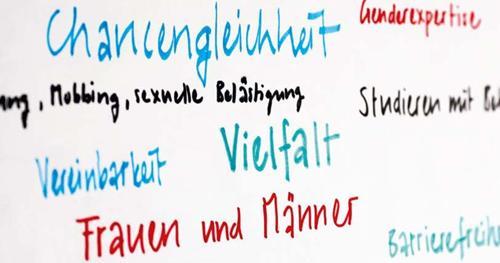 Chancengleichheit
Genderexpertise
, Mobbing, sexuelle Belästigung
Studieren mit
Vielfalt
Vereinbarkeit
Frauen und Männer